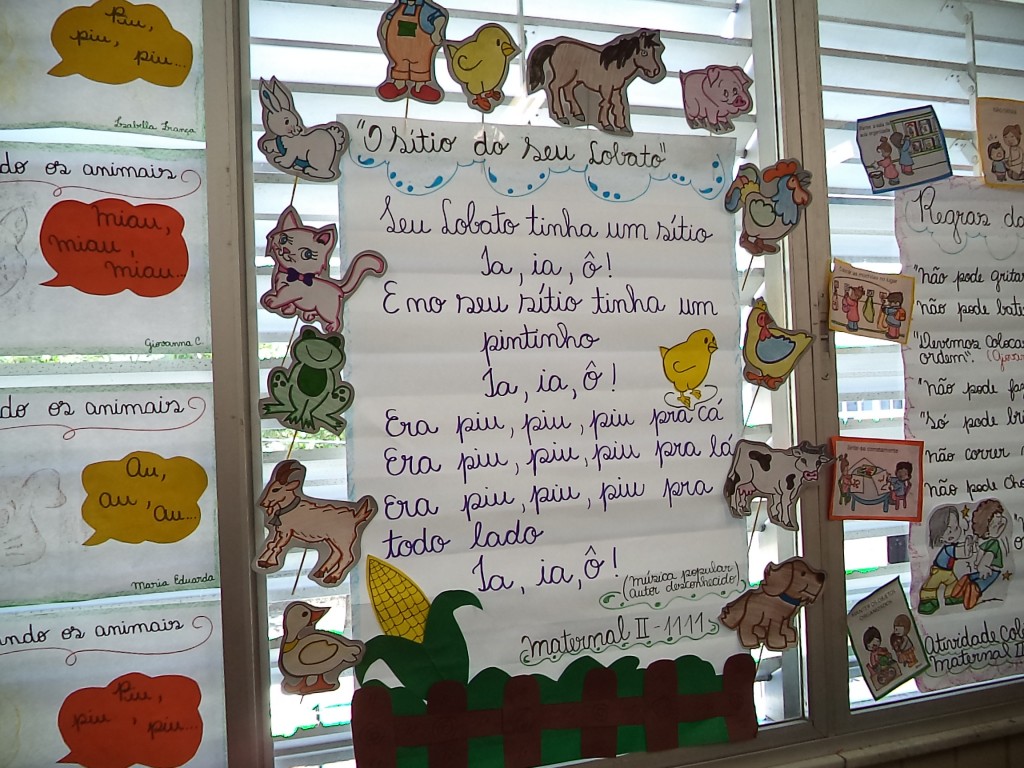 Piu,
piu, piu,
piu...
Izabella França
ndo os animais
Miau,
miau,
miau...
Giovanna C.
do os animais
Au,
au, au...
Maria Eduarda
ando os animais
Piu,
piu, piu...
"O Sítio do seu Lobato"
Seu Lobato tinha um sítio
Ia, ia, ô!
E no seu sítio tinha um
pintinho
Ia, ia, ô!
Era piu, piu, piu pra cá
Era piu, piu, piu pra lá
Era piu, piu, piu pra
todo lado
Ia, ia, ô!
(música popular
autor desconhecido)
maternal II - 1111
Regras da
"não pode gritar
não pode bate
"Devemos coloca
ordem".
"não pode
"Só pode
não correr
não pode
Atividade
maternal II